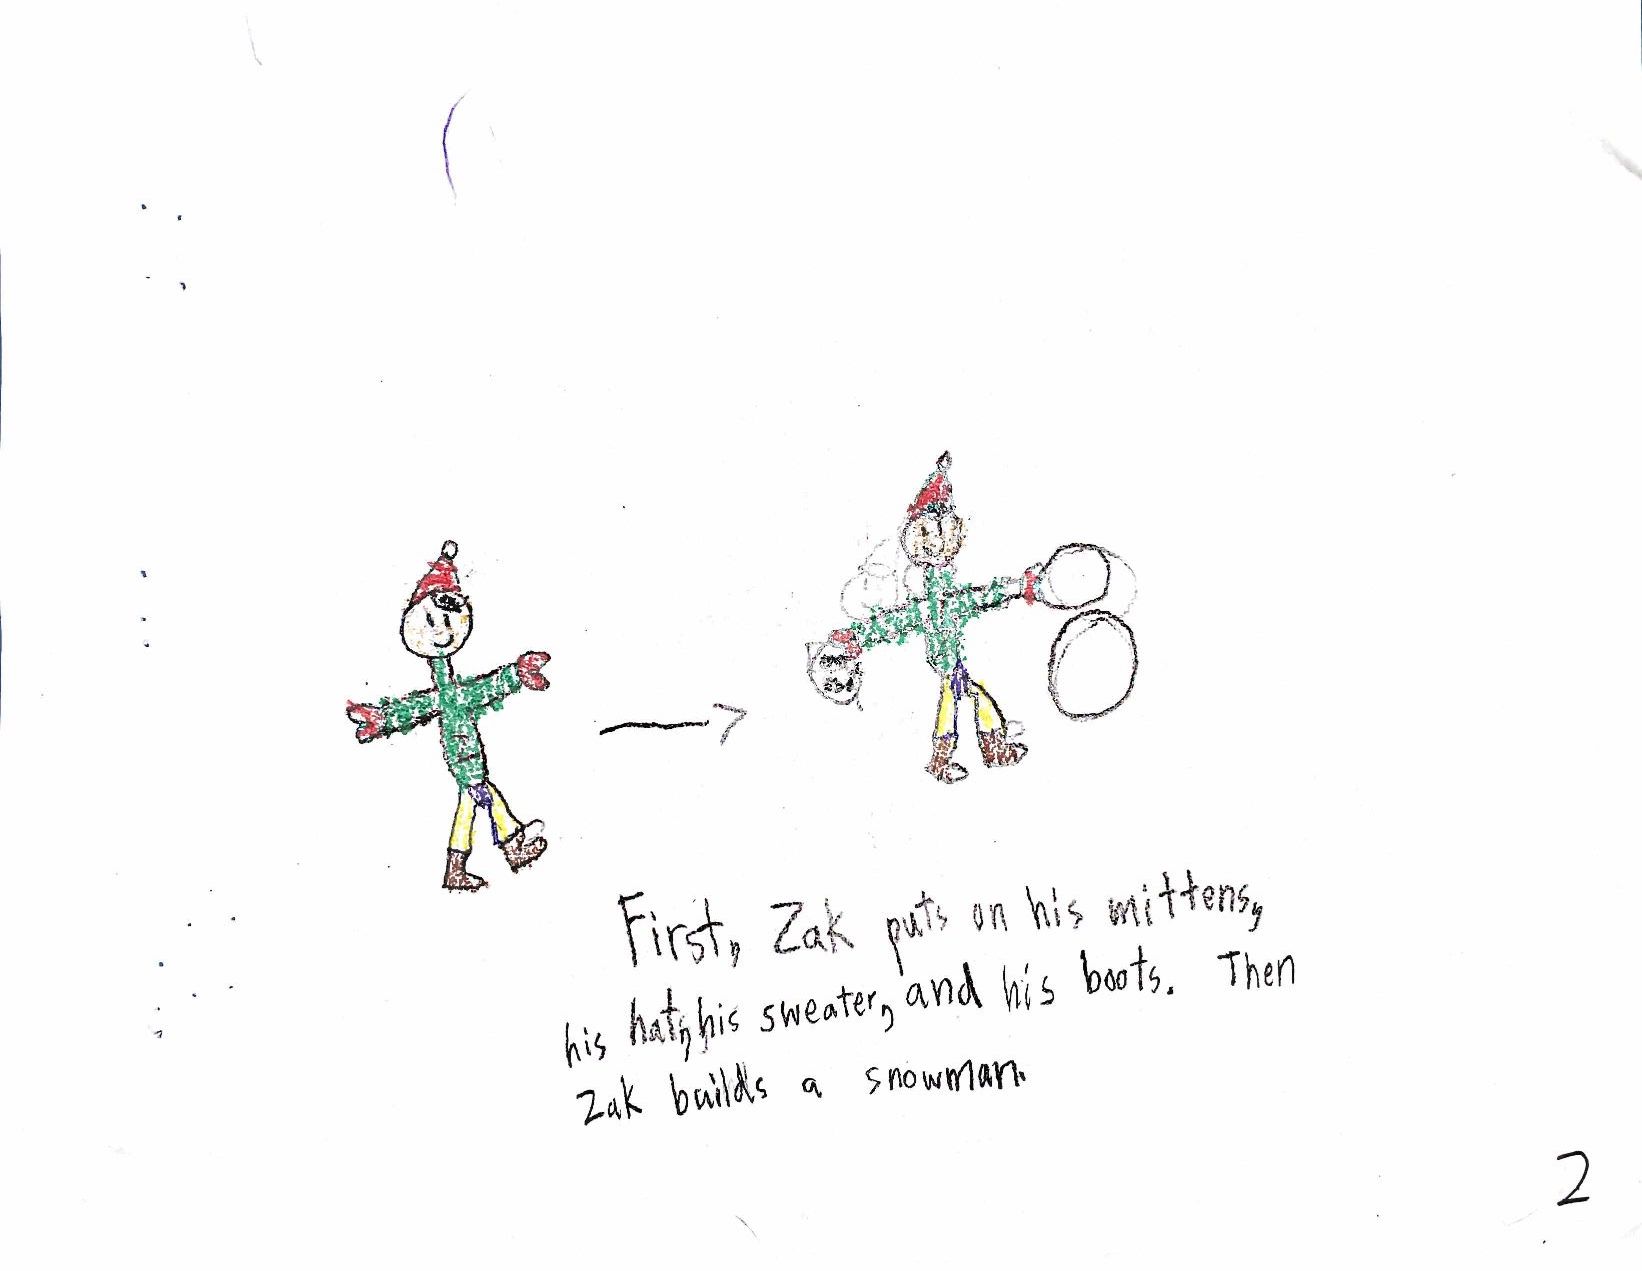 First, Zak puts on his mittens,
his hat, his sweater, and his boots. Then
Zak builds a snowman.
2